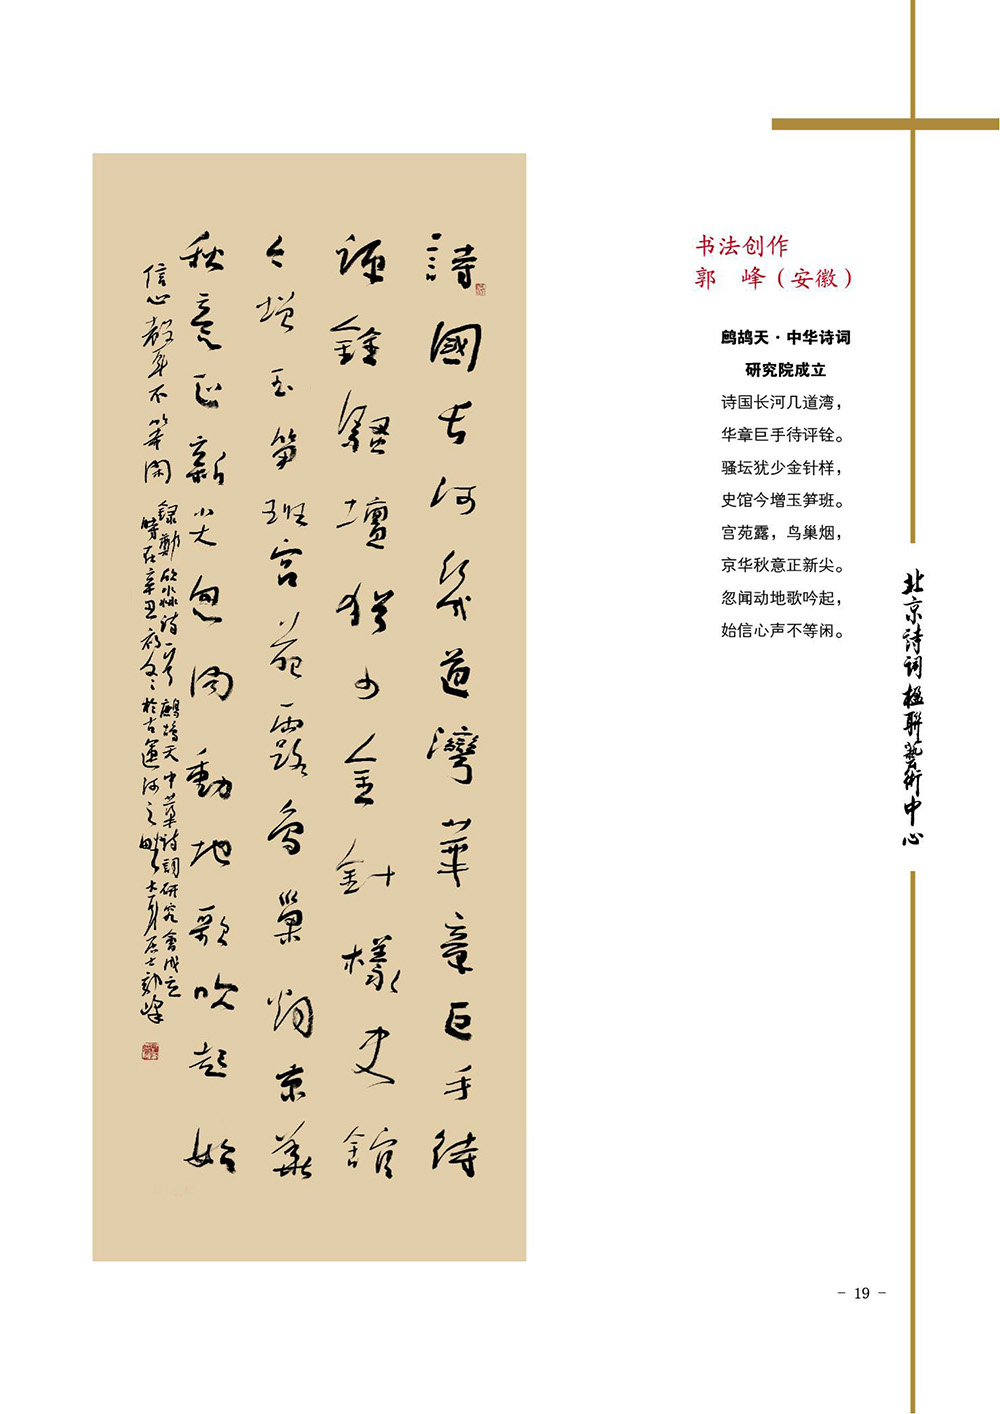 詩國长河幾道灣華章巨手待
評銓騷壇猶少金針樣史館
今增玉筍班宮苑露鳥巢烟京華
秋意正新尖忽闻動地歌吹起始
信心聲不等閑
錄鄭欣淼詩一首鷓鴣天中華詩詞研究會成立
時在辛丑初冬於古運河之畔
书法创作
郭　峰（安徽）
鹧鸪天·中华诗词
研究院成立
诗国长河几道湾，
华章巨手待评铨。
骚坛犹少金针样，
史馆今增玉笋班。
宫苑露，鸟巢烟，
京华秋意正新尖。
忽闻动地歌吟起，
始信心声不等闲。
北京詩词楹聯藝術中心
- 19 -